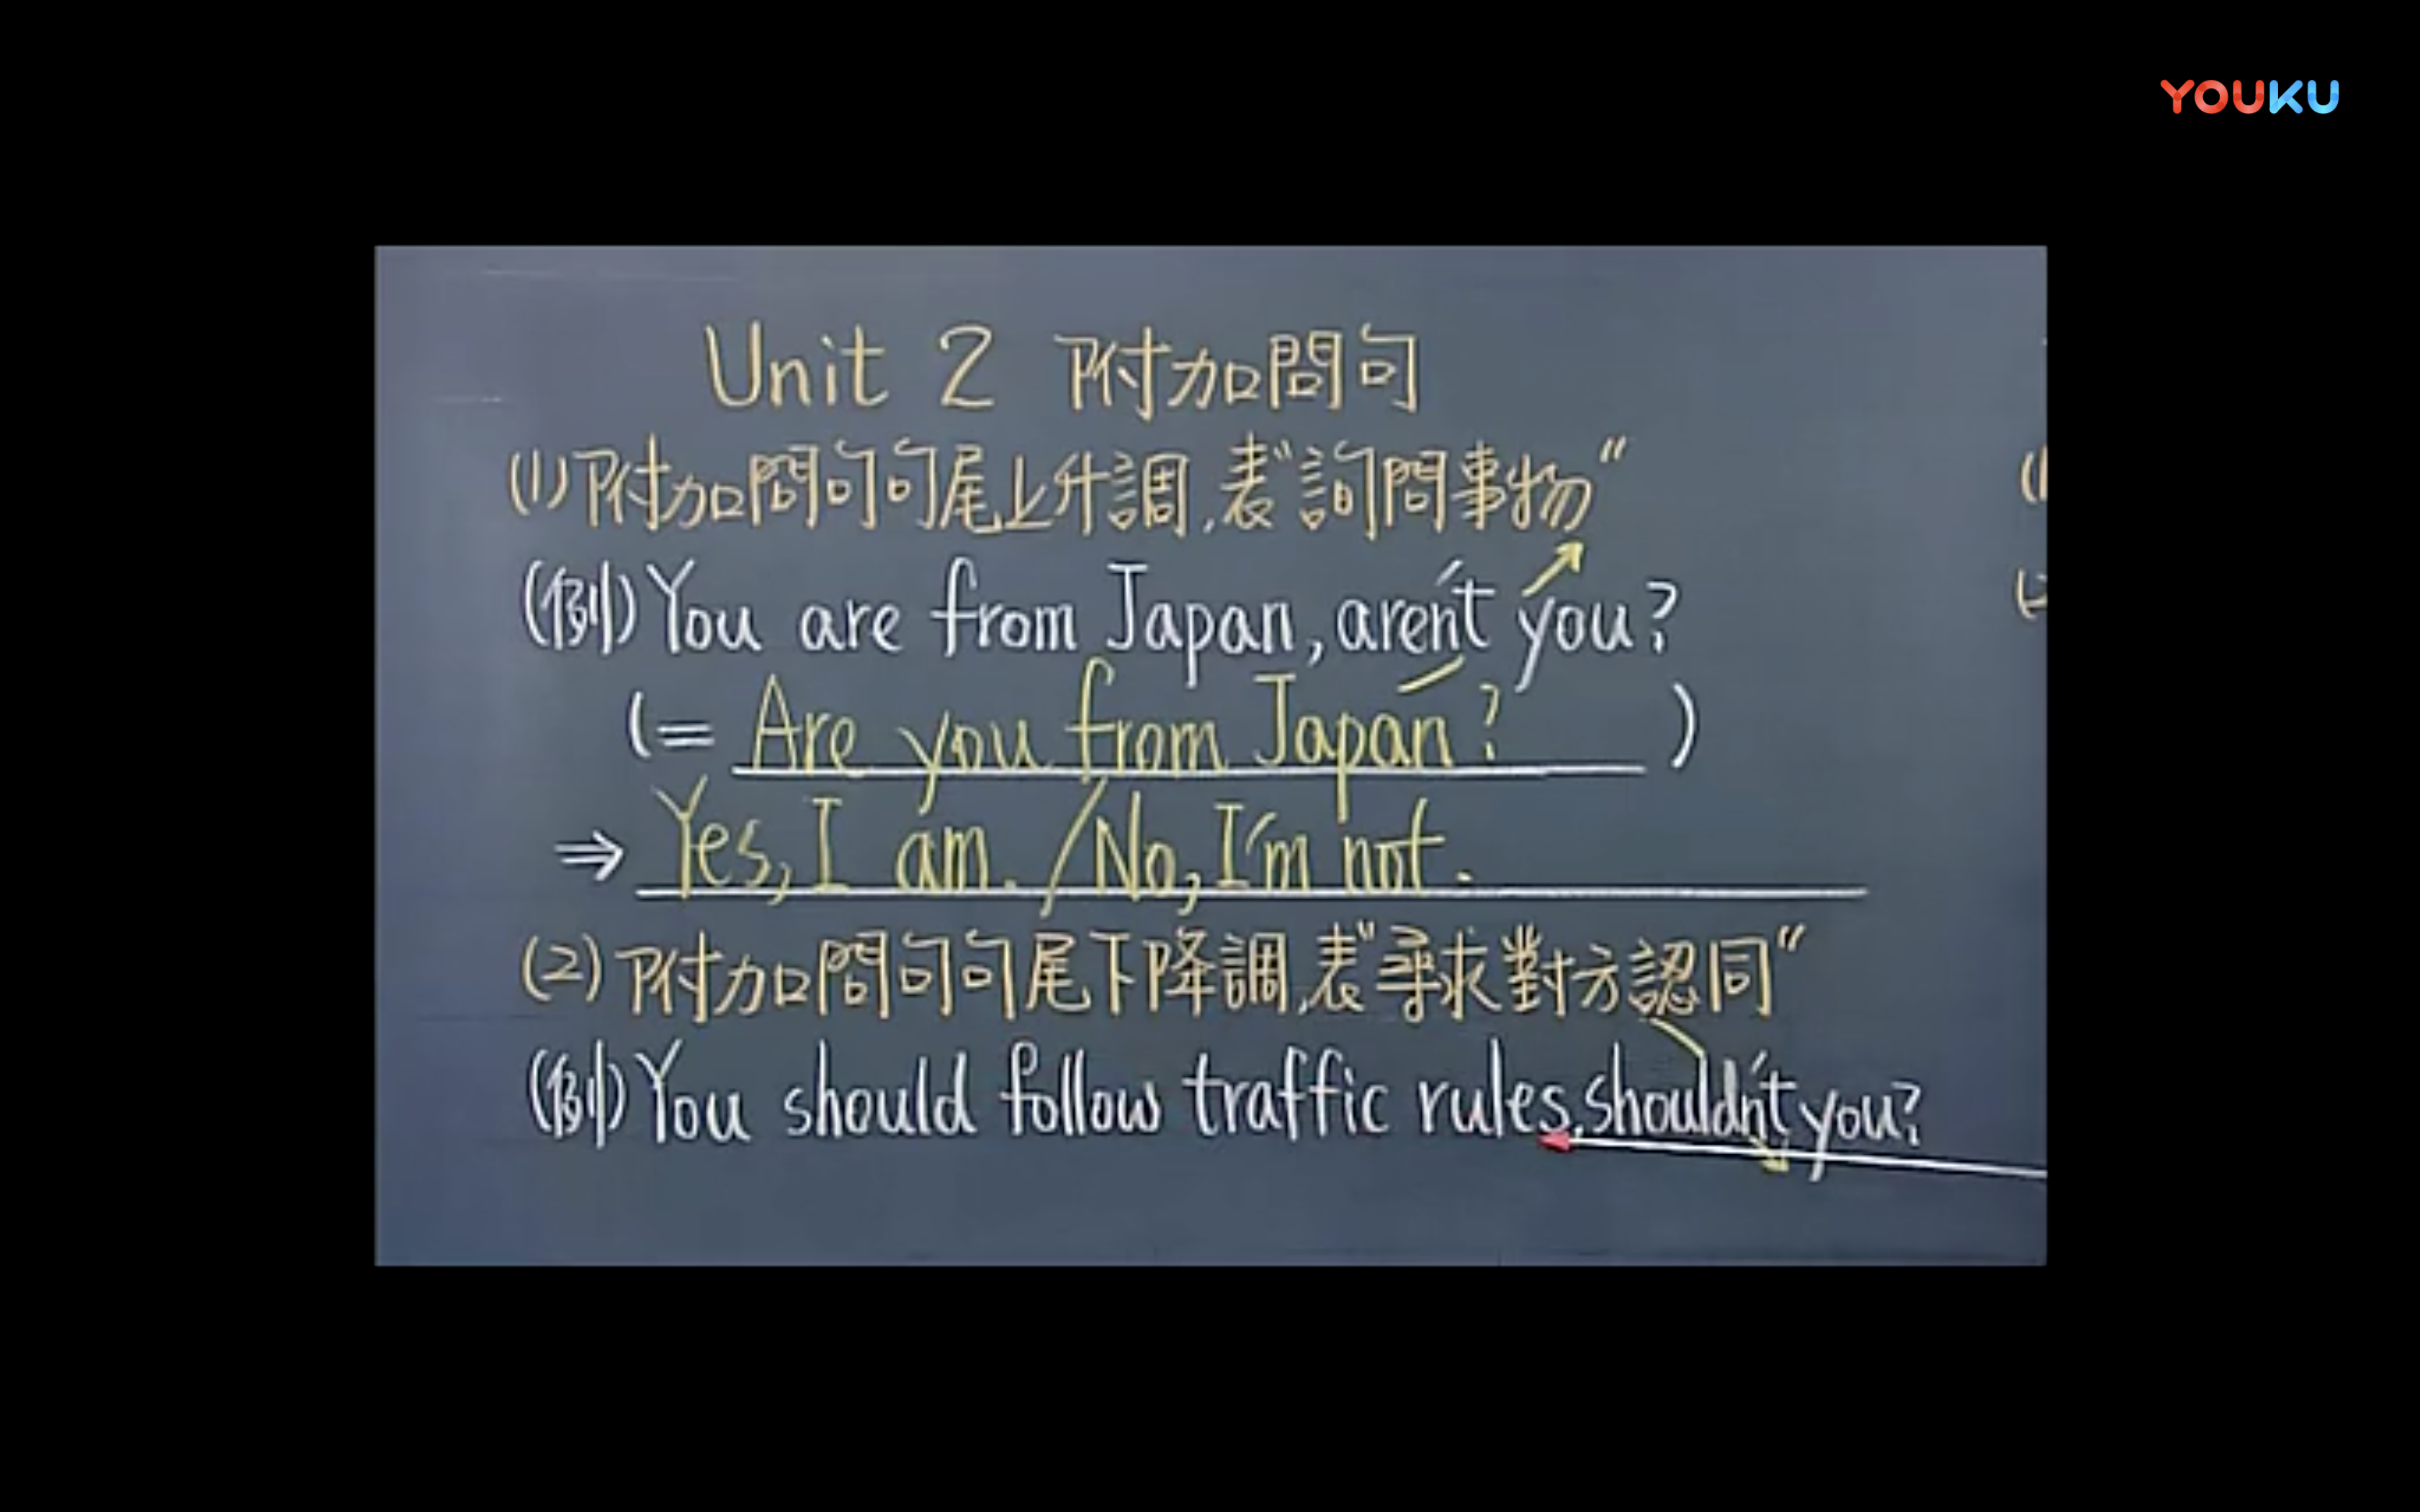 YOUKU
Unit 2 附加問句
(1)附加問句句尾上升調,表"詢問事物"
(例)You are from Japan, aren't you?
(= Are you from Japan? )
⇒ Yes, I am. / No, I'm not.
(2)附加問句句尾下降調,表"尋求對方認同"
(例)You should follow traffic rules, shouldn't you?